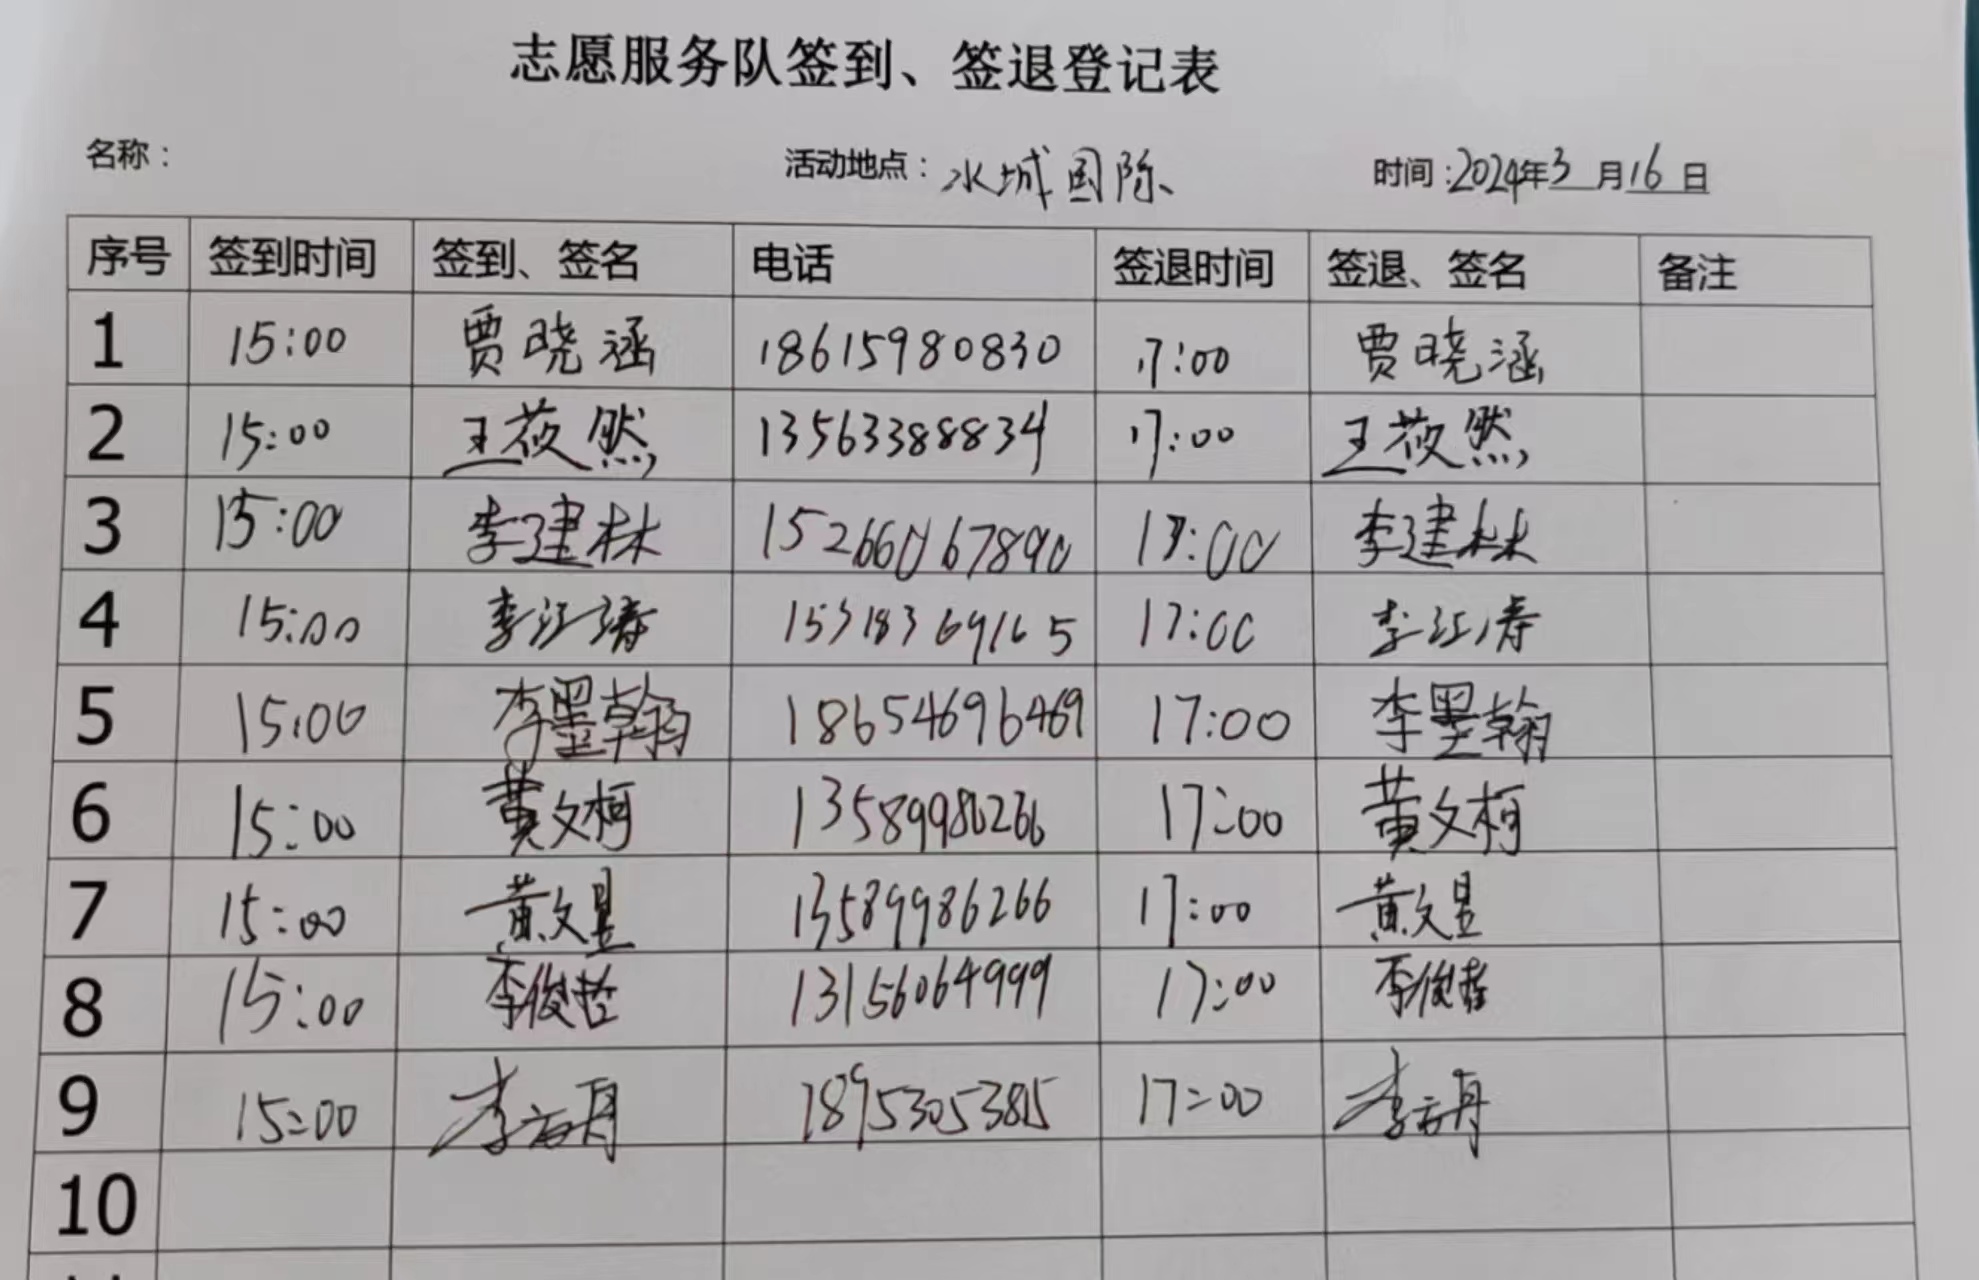 志愿服务队签到、签退登记表
名称： 活动地点：水城国际 时间：2024年3月16日
序号 签到时间 签到、签名 电话 签退时间 签退、签名 备注
1 15:00 贾晓涵 18615980830 17:00 贾晓涵
2 15:00 王莜然 13563388834 17:00 王莜然
3 15:00 李建林 15266067890 17:00 李建林
4 15:00 李江涛 15318369165 17:00 李江涛
5 15:00 李墨翰 18654696469 17:00 李墨翰
6 15:00 黄文柯 13589986266 17:00 黄文柯
7 15:00 黄文昱 13589986266 17:00 黄文昱
8 15:00 李俊哲 13156064999 17:00 李俊哲
9 15:00 18953053815 17:00
10